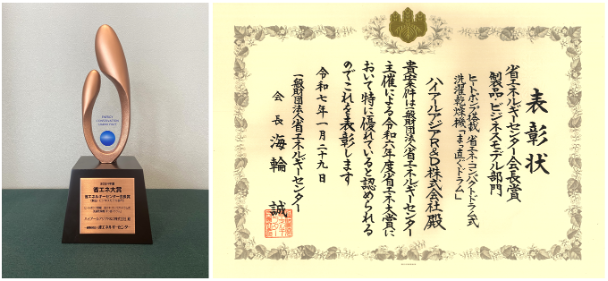 ENERGY
CONSERVATION
省エネ大賞
表彰状
省エネルギーセンター会長賞
製品・ビジネスモデル部門
ヒートポンプ搭載 省エネ・コンパクトドラム式
洗濯乾燥機「まっ直ぐドラム」
ハイアールアジアR&D株式会社殿
貴案件は一般財団法人省エネルギーセンター
主催による令和六年度省エネ大賞に
おいて特に優れていると認められる
のでこれを表彰します
令和七年一月二十九日
一般財団法人省エネルギーセンター
会長 海輪 誠